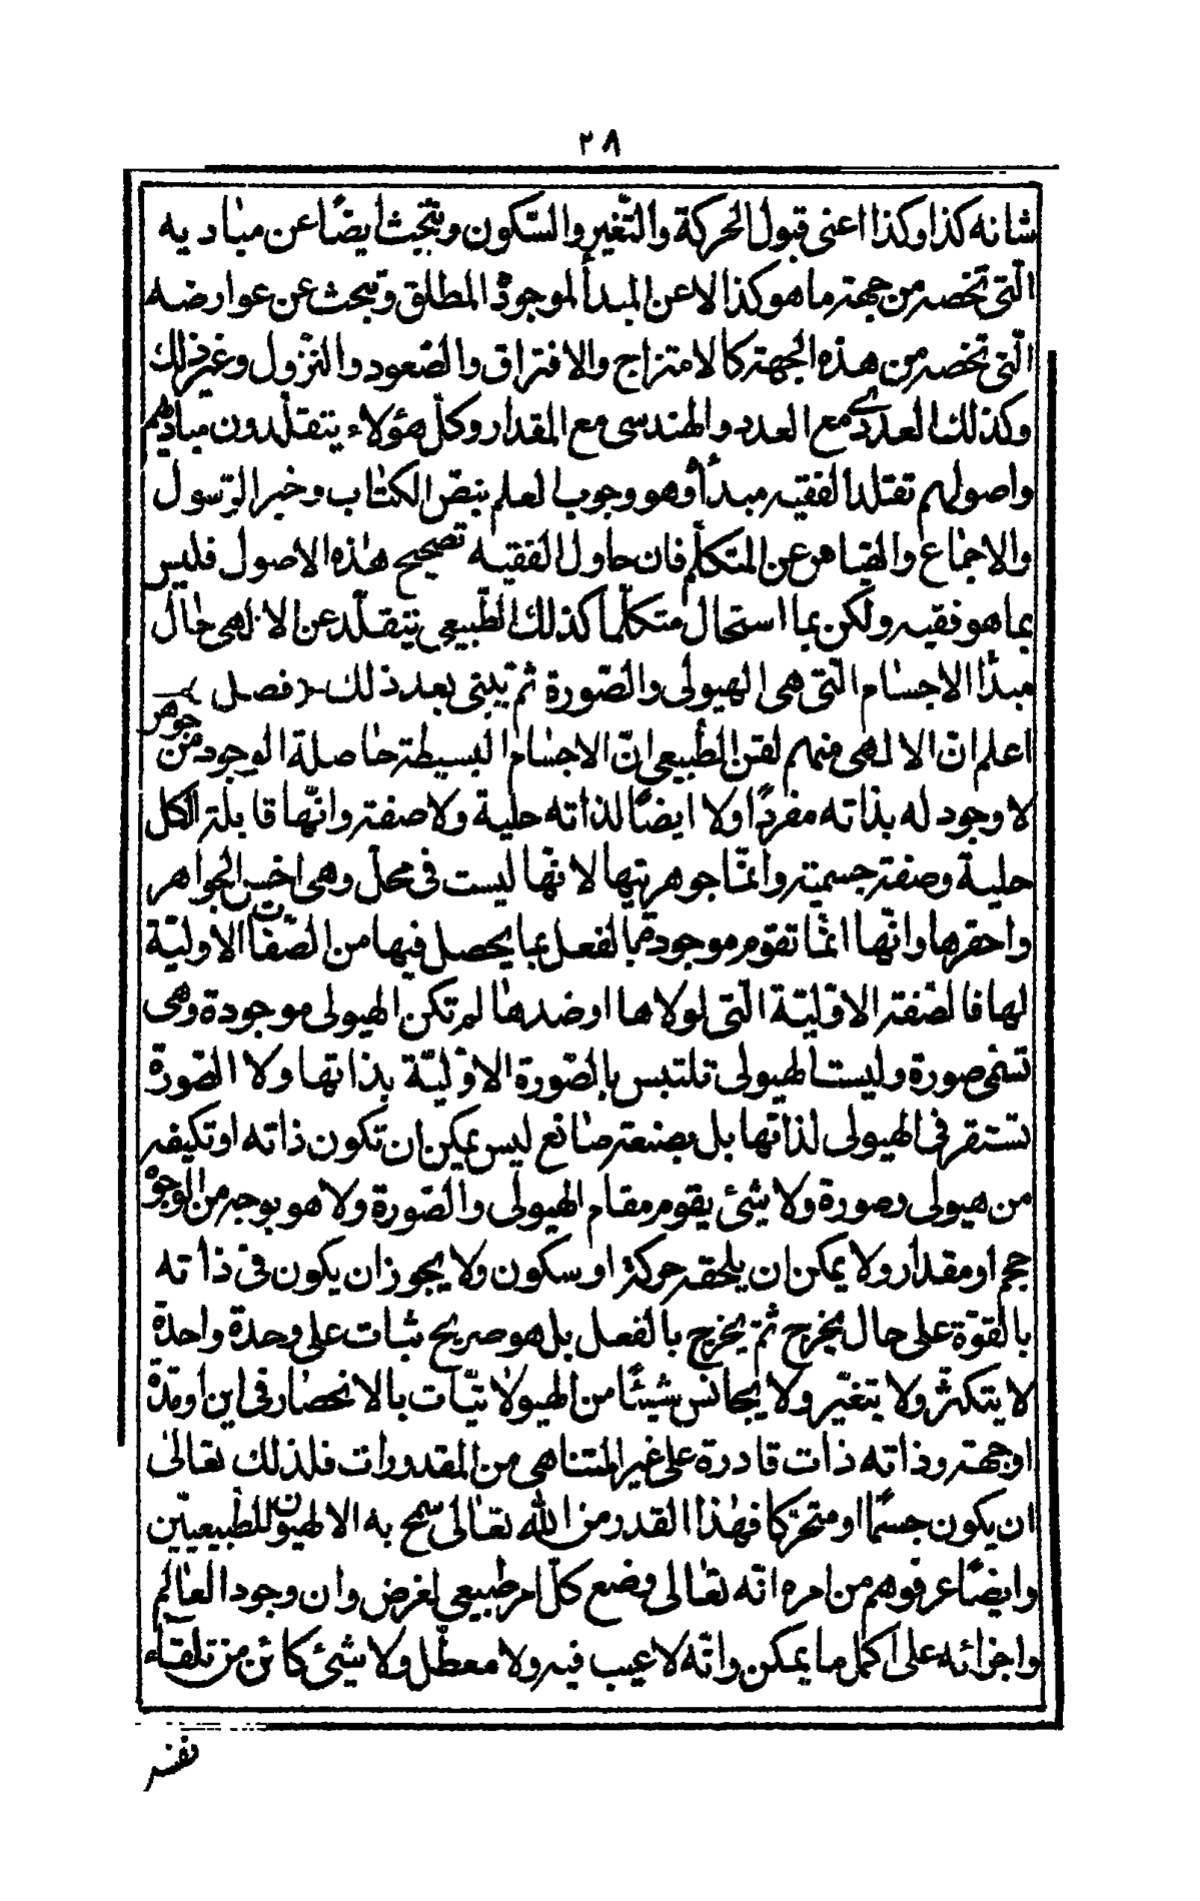 ٢٨
شانه كذا وكذا اعنى قبول الحركة والتّغير والسّكون ويبحث ايضًا عن مباديه
الّتى تخصه من جهة ما هو كذا لا عن المبدأ لموجود المطلق ويبحث عن عوارضه
الّتى تخصه من هذه الجهة كالامتزاج والافتراق والصّعود والنّزول وغير ذلك
وكذلك العددى مع العدد والهندسى مع المقدار وكلّ هؤلاء يتقلّدون مباديهم
واصولهم تقلد الفقيه مبدأ وهو وجوب العلم بنصّ الكتاب وخبر الرّسول
والاجماع والقياس عن المتكلّم فان حاول الفقيه تصحيح هٰذه الاصول فليس
بما هو فقيه ولكن بما استحال متكلّما كذلك الطّبيعى يتقلّد عن الالهى حال
مبدأ الاجسام الّتى هى الهيولى والصّورة ثمّ يبنى بعد ذلك ﴿فصل﴾
اعلم انّ الالهى منهم لقن الطّبيعى انّ الاجسام البسيطة حاصلة الوجود من جوهر
لا وجود له بذاته مفردًا ولا ايضًا لذاته حلية ولا صفة وانّها قابلة الكل
حلية وصفة جسمية وانّما جوهريتها لانّها ليست فى محلّ وهى اخسّ الجواهر
واحقرها وانّها انّما تقوم موجودة بالفعل بما يحصل فيها من الصّفات الاوليّة
لها فالصّفة الاوّليّة الّتى لولاها او ضدها لم تكن الهيولى موجودة وهى
تسمّى صورة وليست الهيولى تلتبس بالصّورة الاوّليّة بذاتها ولا الصّورة
تستقر فى الهيولى لذاتها بل بصنعة صانع ليس يمكن ان تكون ذاته او تكيفه
من هيولى وصورة ولا شئ يقوم مقام الهيولى والصّورة ولا هو بوجه من الوجوه
حجم او مقدار ولا يمكن ان يلحقه حركة او سكون ولا يجوز ان يكون فى ذاته
بالقوّة على حال يخرج ثمّ يخرج بالفعل بل هو صريح ثبات على وحدة واحدة
لا يتكثّر ولا يتغيّر ولا يجانس شيئًا من الهيولانيّات بالانحصار فى اين او مدّة
او جهة وذاته ذات قادرة على غير المتناهى من المقدورات فلذلك تعالى
ان يكون جسمًا او متحركا فهٰذا القدر من الله تعالى سمح به الالهيون للطّبيعيّين
وايضًا عرفوهم من امره انّه تعالى وضع كلّ امر طبيعى لغرض وان وجود العالم
واجزائه على اكمل ما يمكن وانّه لا عيب فيه ولا معطّل ولا شئ كائن من تلقآء
نفسه